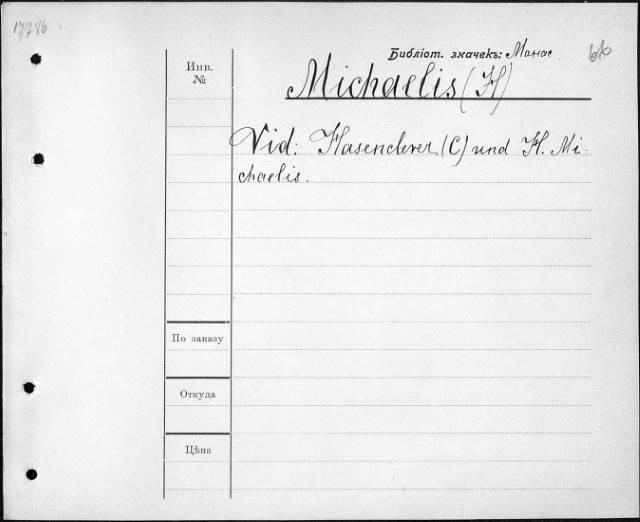 17786
Библіот. значекъ: Манас
Инв. №
Michaelis (H)
Vid: Hasenclever (C) und H. Mi-
chaelis.
По заказу
Откуда
Цѣна